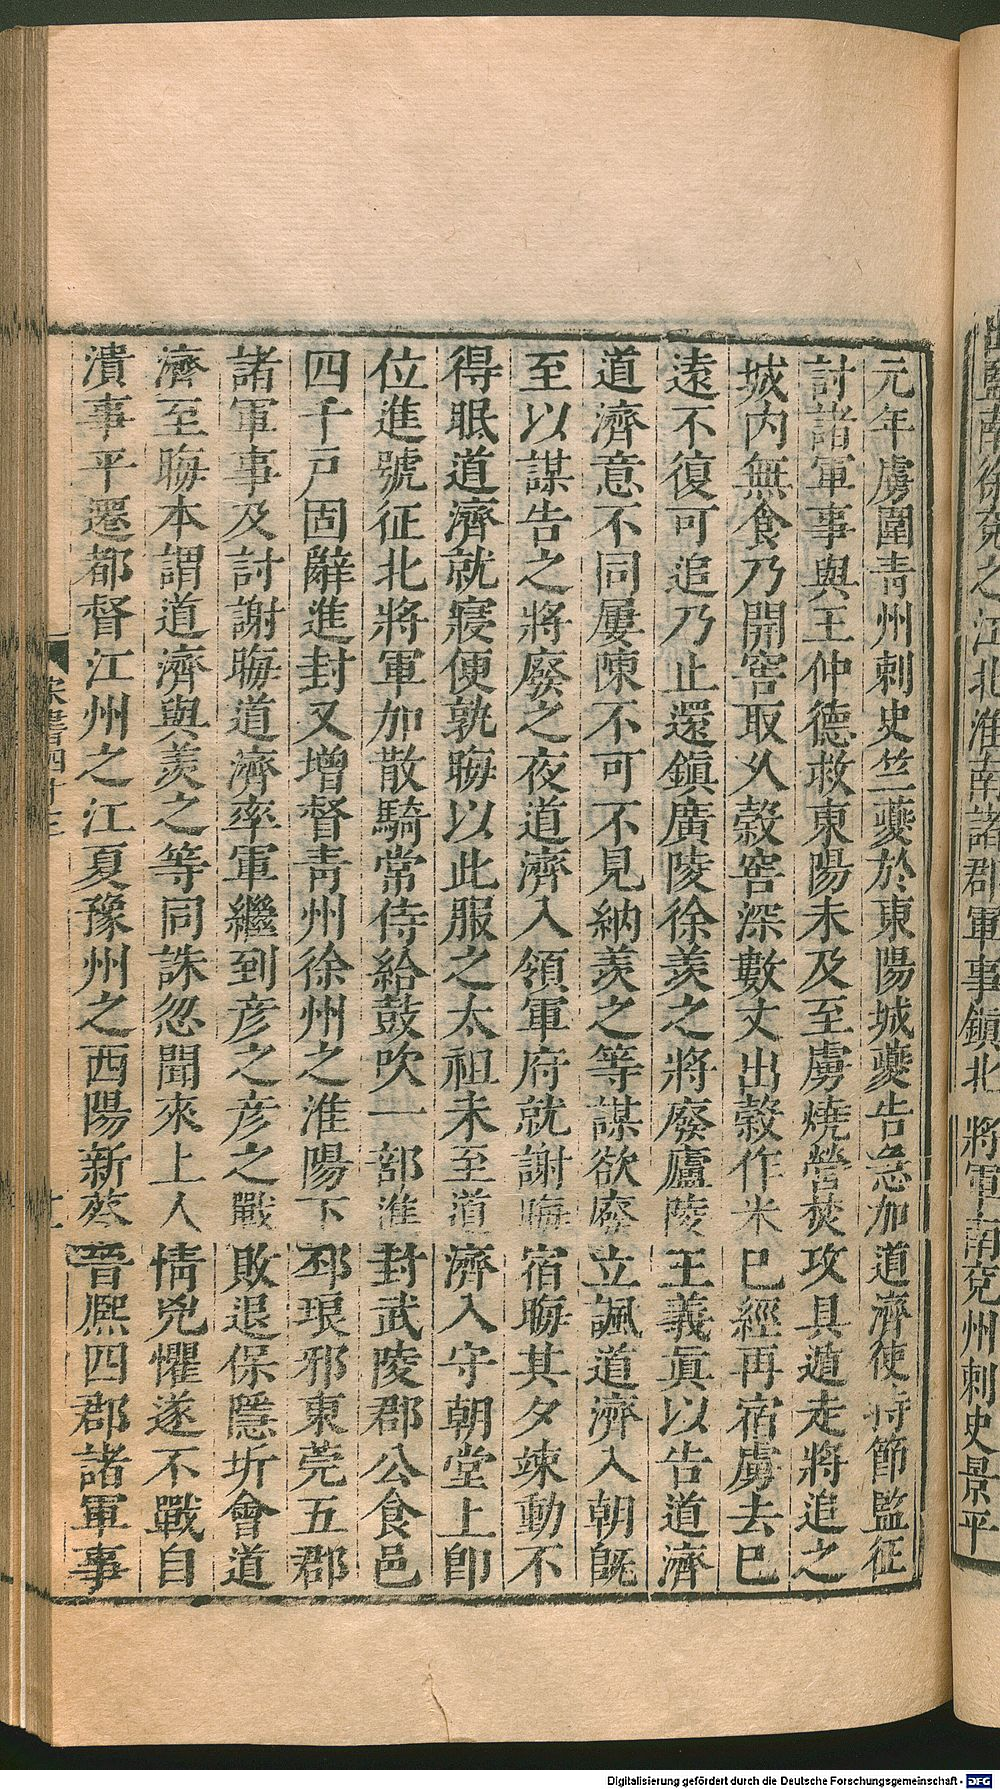 監南徐兗之江北淮南諸郡軍事鎮北將軍南兗州刺史景平
元年虜圍青州刺史竺夔於東陽城夔告急加道濟使持節監征
討諸軍事與王仲德救東陽未及至虜燒營焚攻具遁走將追之
城内無食乃開窖取久穀窖深數丈出穀作米已經再宿虜去已
遠不復可追乃止還鎮廣陵徐羨之將廢廬陵王義眞以告道濟
道濟意不同屢陳不可不見納羨之等謀欲廢立諷道濟入朝旣
至以謀告之將廢之夜道濟入領軍府就謝晦宿晦其夕竦動不
得眠道濟就寢便孰晦以此服之太祖未至道濟入守朝堂上卽
位進號征北將軍加散騎常侍給鼓吹一部進封武陵郡公食邑
四千戸固辭進封又增督青州徐州之淮陽下邳琅邪東莞五郡
諸軍事及討謝晦道濟率軍繼到彦之彦之戰敗退保隱圻會道
濟至晦本謂道濟與羨之等同誅忽聞來上人情兇懼遂不戰自
潰事平遷都督江州之江夏豫州之西陽新蔡晉熈四郡諸軍事
宋書四十三
Digitalisierung gefördert durch die Deutsche Forschungsgemeinschaft - DFG